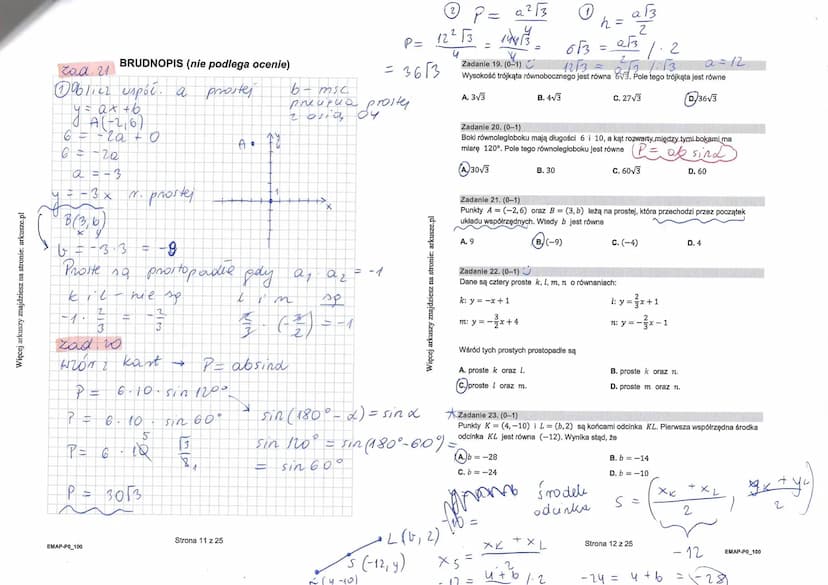 ② P = a²√3 / 4
① h = a√3 / 2
P = 12²√3 / 4 = 144√3 / 4 =
= 36√3
6√3 = a√3 / 2 / · 2
12√3 = a√3 / : √3 a = 12
zad. 21
BRUDNOPIS (nie podlega ocenie)
① Oblicz współ. a prostej
y = ax + b
A(-2, 6)
6 = -2a + 0
6 = -2a
a = -3
y = -3x r. prostej
B(3, b)
x y
b = -3 · 3 = -9
b - msc
przecięcia prostej
z osią Oy
A
y
1
x
Proste są prostopadłe gdy a₁ · a₂ = -1
k i l - nie są
-1 · 2/3 = -2/3
l i m są
2/3 · (-3/2) = -1
zad. 20
wzór z kart → P = ab sinα
P = 6 · 10 · sin 120°
P = 6 · 10 · sin 60°
sin(180° - α) = sin α
sin 120° = sin(180° - 60°) =
= sin 60°
P = 6 · 10 5 √3 / 2 1
P = 30√3
Więcej arkuszy znajdziesz na stronie: arkusze.pl
EMAP-P0_100
Strona 11 z 25
L(b, 2)
S(-12, y)
Zadanie 19. (0–1)
Wysokość trójkąta równobocznego jest równa 6√3. Pole tego trójkąta jest równe
A. 3√3
B. 4√3
C. 27√3
D. 36√3
Zadanie 20. (0–1)
Boki równoległoboku mają długości 6 i 10, a kąt rozwarty między tymi bokami ma
miarę 120°. Pole tego równoległoboku jest równe
P = ab sinα
A. 30√3
B. 30
C. 60√3
D. 60
Zadanie 21. (0–1)
Punkty A = (−2, 6) oraz B = (3, b) leżą na prostej, która przechodzi przez początek
układu współrzędnych. Wtedy b jest równe
A. 9
B. (−9)
C. (−4)
D. 4
Zadanie 22. (0–1)
Dane są cztery proste k, l, m, n o równaniach:
k: y = −x + 1
l: y = 2/3 x + 1
m: y = −3/2 x + 4
n: y = −2/3 x − 1
Wśród tych prostych prostopadłe są
A. proste k oraz l.
B. proste k oraz n.
C. proste l oraz m.
D. proste m oraz n.
Zadanie 23. (0–1)
Punkty K = (4, −10) i L = (b, 2) są końcami odcinka KL. Pierwsza współrzędna środka
odcinka KL jest równa (−12). Wynika stąd, że
A. b = −28
B. b = −14
C. b = −24
D. b = −10
środek
odcinka
S = ( xK + xL / 2 , yK + yL / 2 )
-12
xS = xK + xL / 2
-12 = 4 + b / 2 / · 2
-24 = 4 + b = (-28)
Więcej arkuszy znajdziesz na stronie: arkusze.pl
Strona 12 z 25
EMAP-P0_100